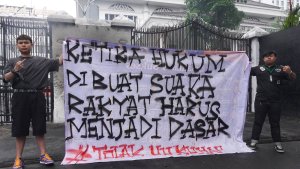 KETIKA HUKUM
DI BUAT SUAKA
RAKYAT HARUS
MENJADI DASAR
# TOLAK UU